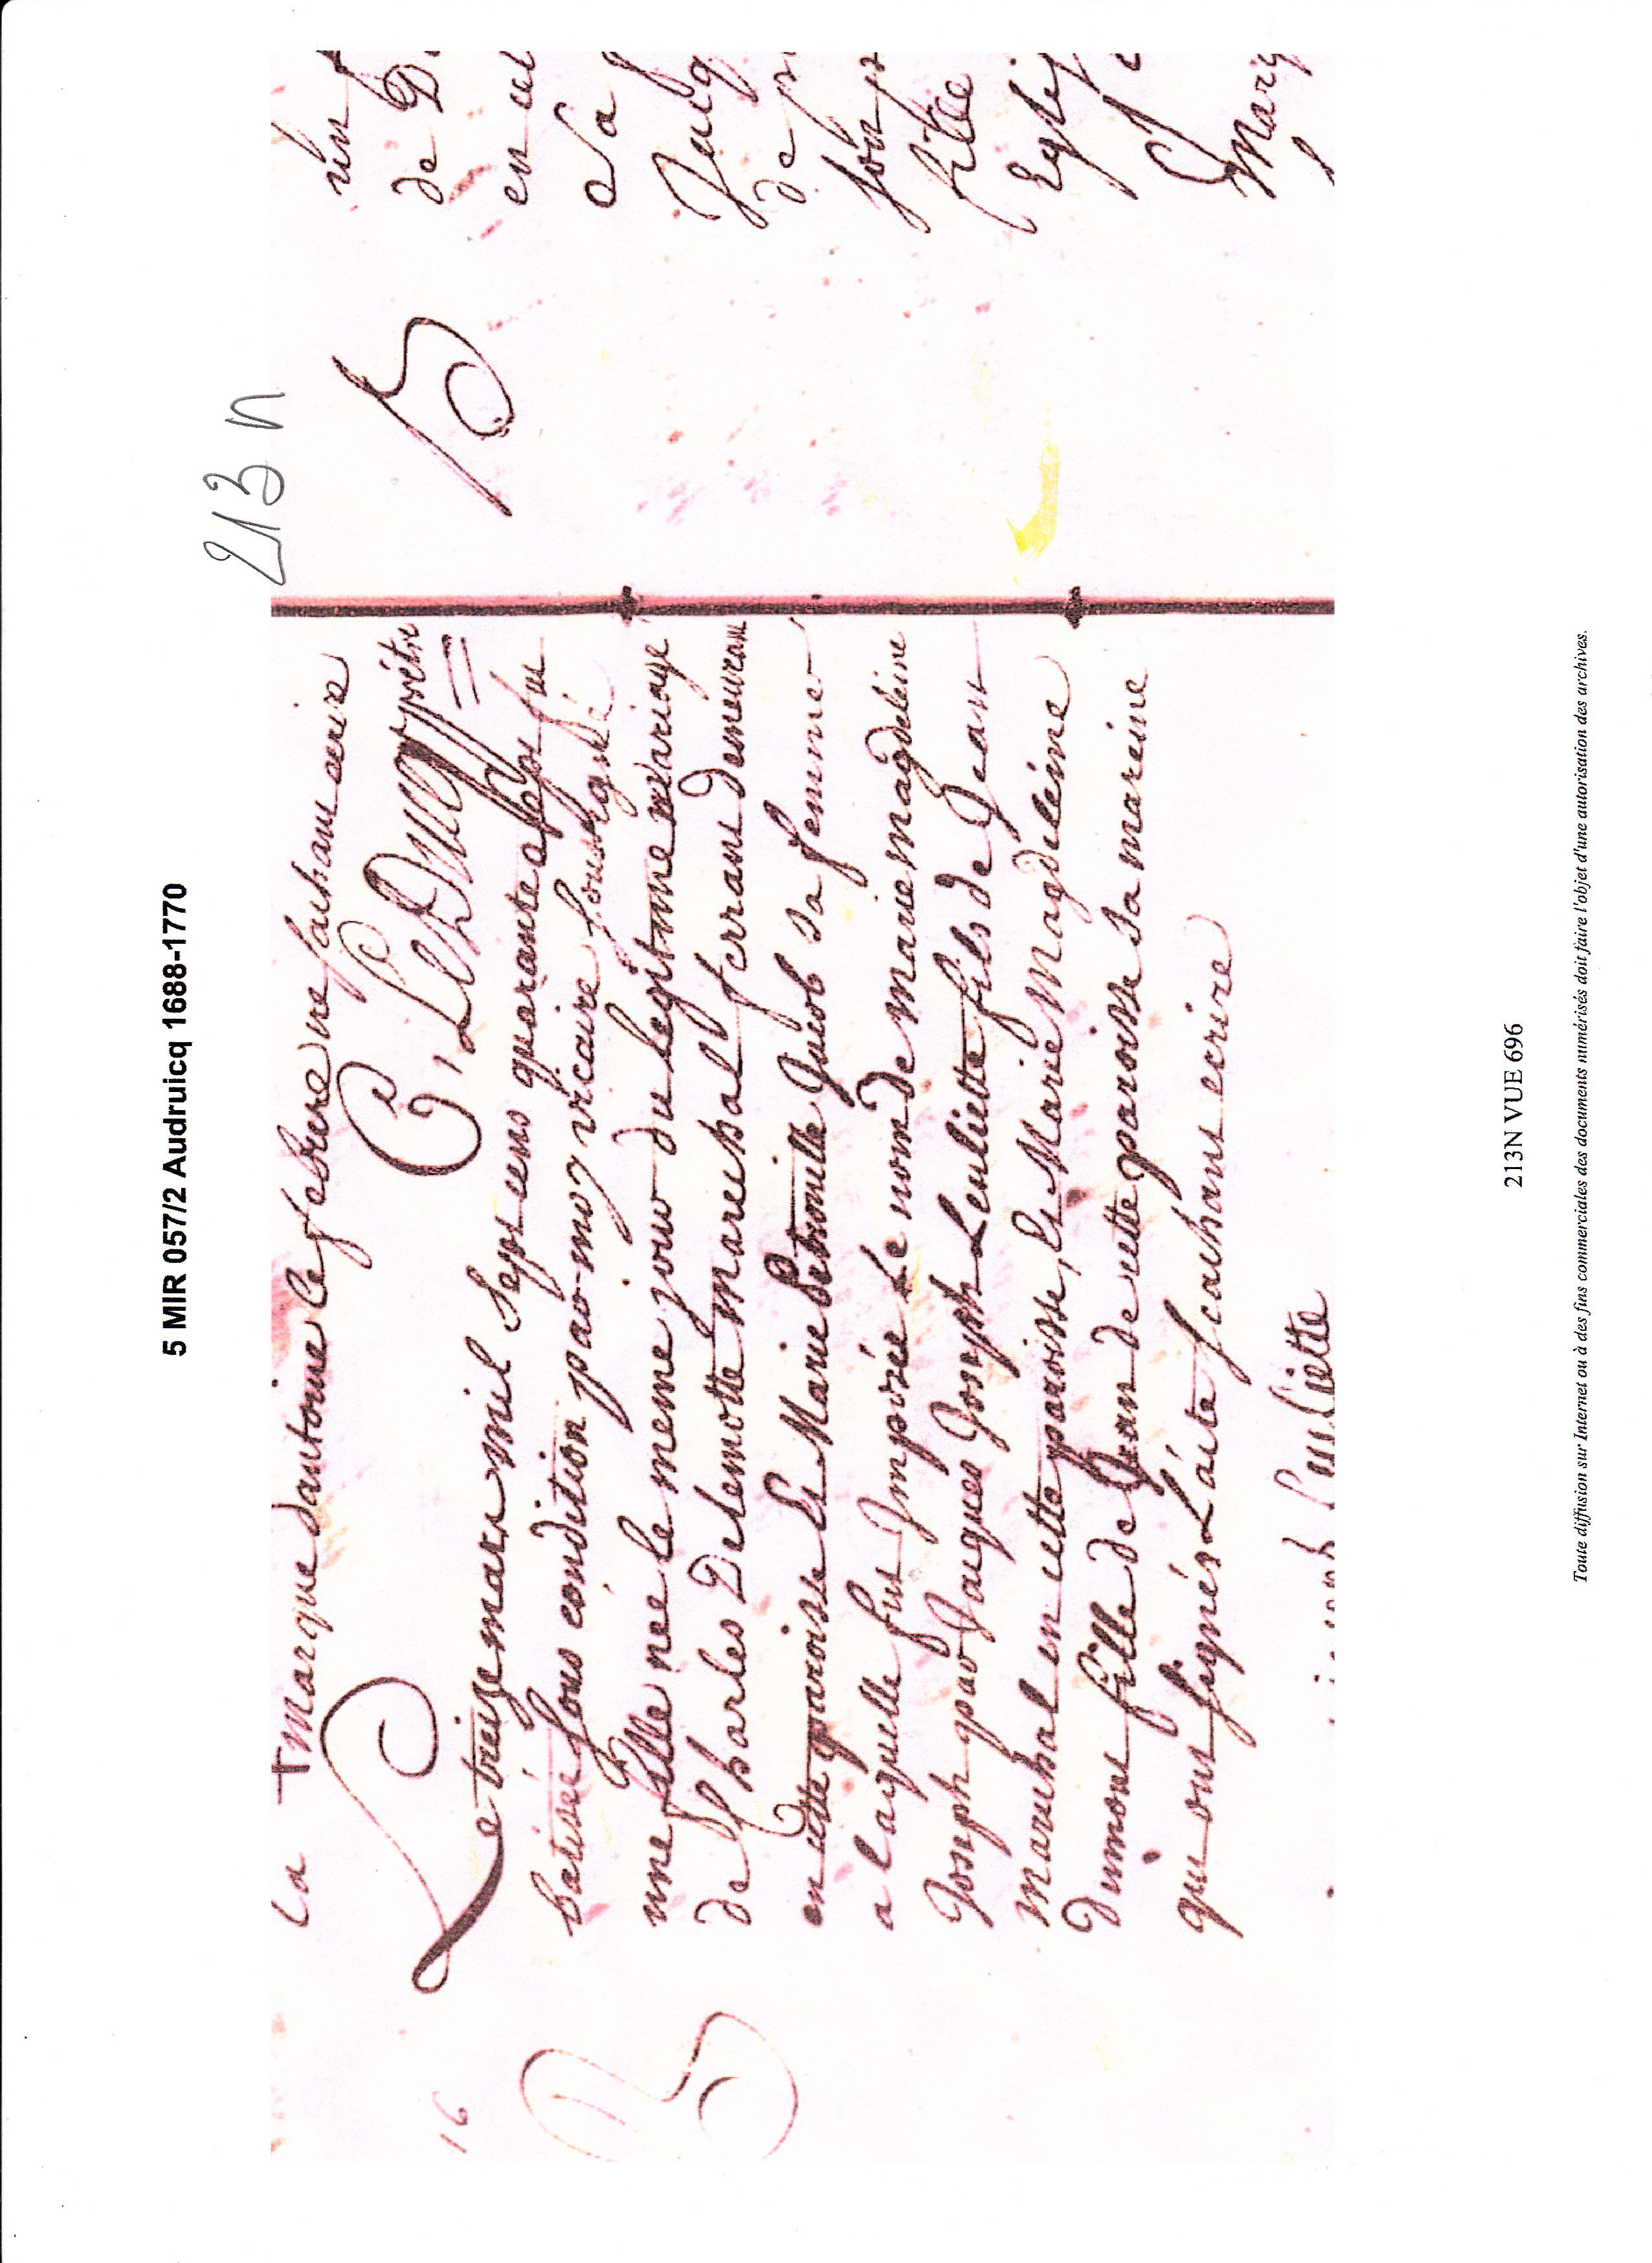 5 MIR 057/2 Audruicq 1688-1770
213 n
La + marque dantoine Lefebvre ne sachant ecrire
prêtre
16
Le treize mars mil sept cens quarante
batisée sous condition par moy vicaire soussigné
une fille née le meme jour du legitime mariage
de Charles Delemotte mareschal ferrant demeurant
en cette paroisse et Marie Petronille Quiob sa femme
a laquelle fut Imposée Le nom de marie magdeleine
Joseph par Jacques Joseph Leuliette fils de Jean
marechal en cette paroisse, et Marie Magdeleine
Dumont fille de Jean de cette paroisse sa mareine
qui ont signés L'acte scachant ecrire
Leuliette
de
en
Sa
de
fille
213N VUE 696
Toute diffusion sur Internet ou à des fins commerciales des documents numérisés doit faire l'objet d'une autorisation des archives.